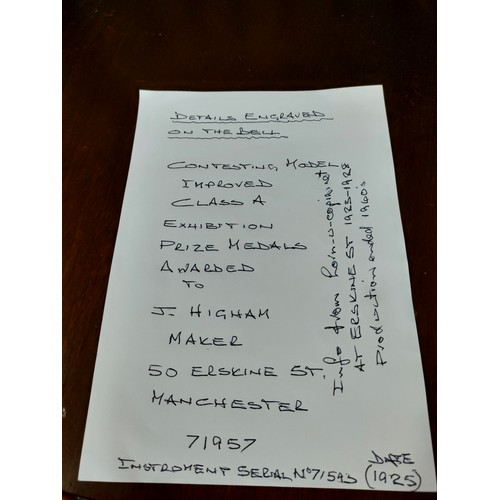 DETAILS ENGRAVED
ON THE BELL
CONTESTING MODEL
IMPROVED
CLASS A
EXHIBITION
PRIZE MEDALS
AWARDED
TO
J. HIGHAM
MAKER
50 ERSKINE ST.
MANCHESTER
71957
INSTROMENT SERIAL No
DATE
(1925)
Info from horn-u-copia.net
AT ERSKINE ST 1923-1928
Production ended 1960's